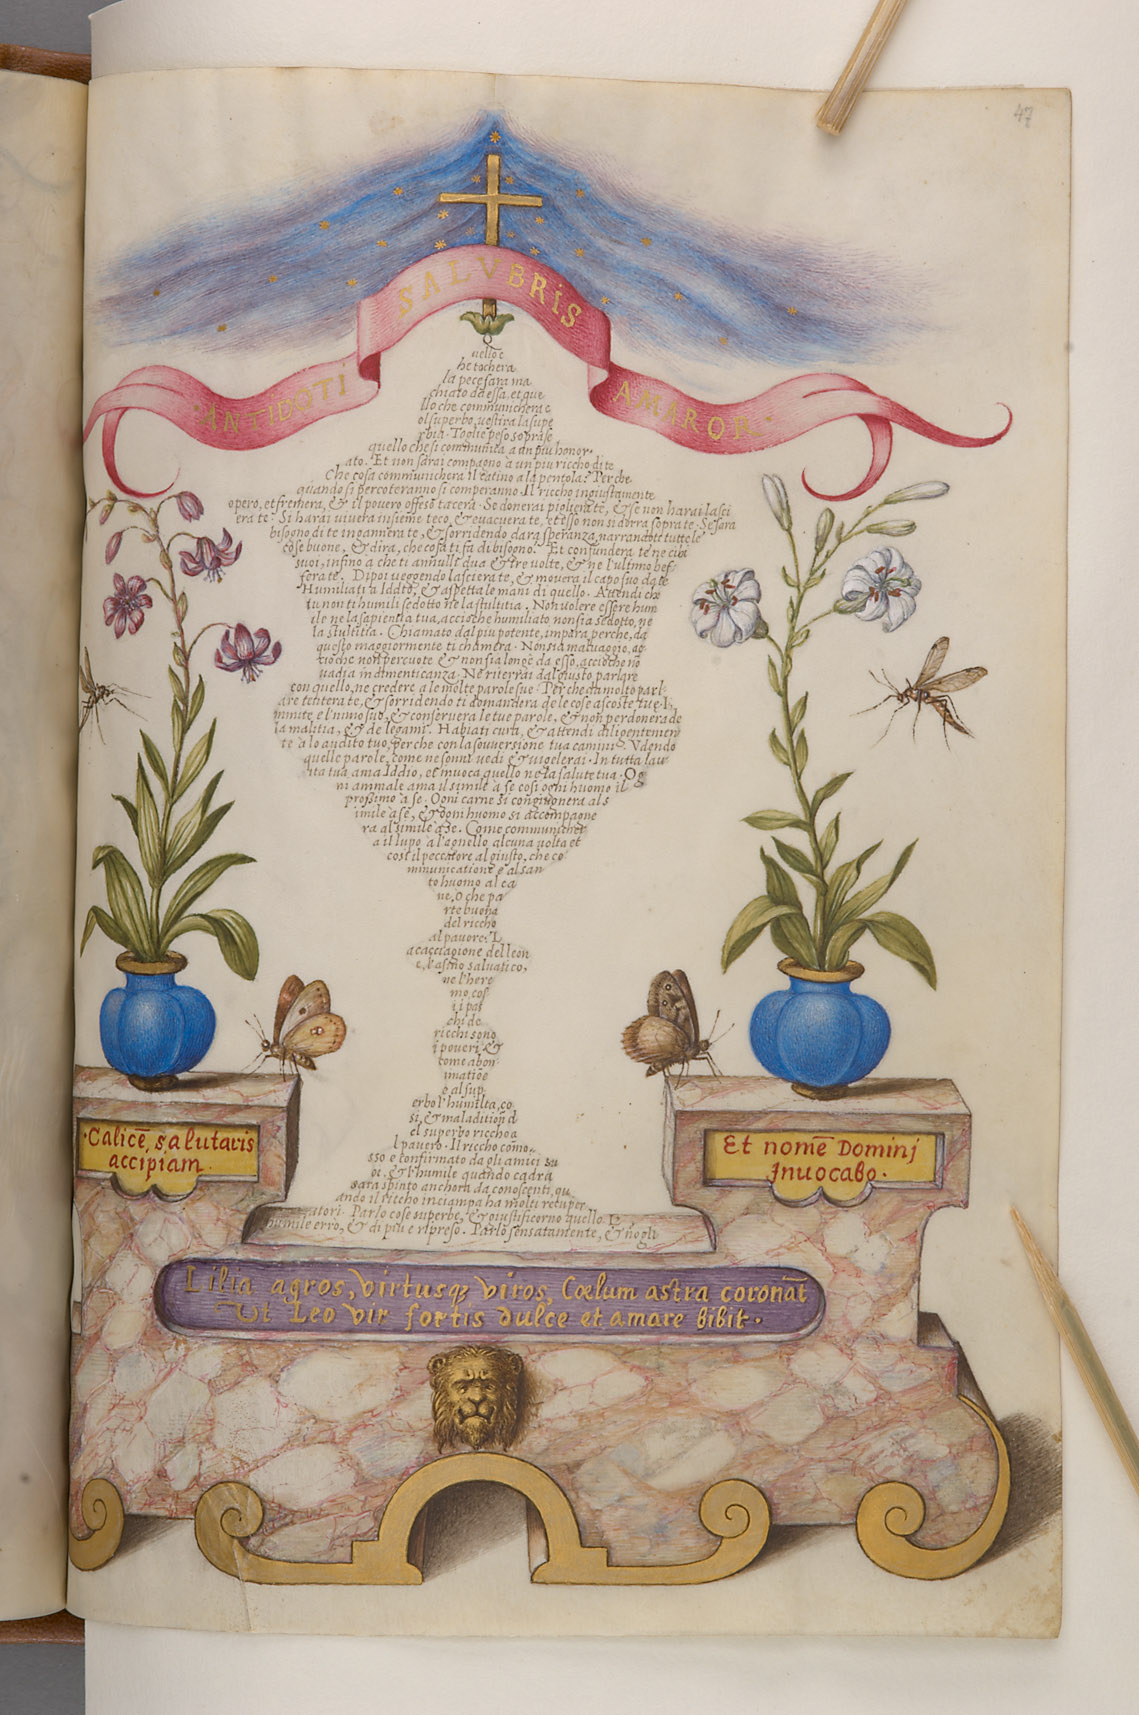 47
ANTIDOTI SALVBRIS AMAROR.
uello c
he tochera
la pece sara ma
chiato da essa. et que
llo che communichera c
ol superbo, vestira la supe
rbia. Toglie peso sopra se
quello che si communica a un piu honor
ato. Et non sarai compagno à un piu riccho di te
Che cosa communichera il catino a la pentola? Perche
quando si percoteranno si comperanno. Il riccho ingiustamente
opero, et fremera, & il povero offeso tacera. Se donerai pigliera te, & se non harai lasci
era te. Si harai vivera insieme teco, & evacuera te, et esso non si dorra sopra te. Se sara
bisogno di te ingannera te, & sorridendo dara speranza, narrandoti tutte le
cose buone, & dira, che cosa ti fa di bisogno. Et confundera te ne cibi
suoi, infino a che ti annulli dua & tre volte, & ne l'ultimo bef-
fera te. Dipoi veggendo lasciera te, & movera il capo suo da te
Humiliati a Iddio, & aspetta le mani di quello. Attendi che
tu non ti humili sedotto ne la stultitia. Non volere essere hum
ile ne la sapientia tua, accioche humiliato non sia sedotto, ne
la stultitia. Chiamato dal piu potente, impara perche, da
questo maggiormente ti chamera. Non sia malvaggio, ac
cioche non percuote & non sia longe da esso, accioche nō
vadia in dimenticanza. Ne riterrai dal giusto parlare
con quello, ne credere a le molte parole sue. Perche da molto parl-
are tentera te, & sorridendo ti domandera de le cose ascoste tue. I
mmite e l'animo suo, & conservera le tue parole, & non perdonera de
la malitia, & de legami. Habiati cura, & attendi diligentemen
te a lo audito tuo, perche con la souversione tua camini. Udendo
quelle parole, come ne sonni vedi & vigelerai. In tutta la v
ita tua ama Iddio, et invoca quello ne la salute tua. Og
ni animale ama il simile a se cosi ogni huomo il
prossimo a se. Ogni carne si congiugnera al s
imile a se, & ogni huomo si accompagne
ra al simile a se. Come communiche
a il lupo a l'agnello alcuna volta et
cosi il peccatore al giusto, che co
mmunicatione e al san
to huomo al ca
ne. O che pa
rte buona
del riccho
al pavore. L
a cacciagione del leon
e, l'asino salvatico,
ne l'here
mo, cos
i i pas
chi de
ricchi sono
i poveri &
come abon
inatiōe
e al sup
erbo l'humilta, co
si, & maladition d
el superbo riccho a
l pavero. Il riccho como-
sso e confirmato da gli amici su
oi, & l'humile quando cadra
sara spinto anchora da conoscenti, qu
ando il riccho inciampa ha molti recuper
atori. Parlo cose superbe, & giustificorno quello. L
humile erro, & di piu e ripreso. Parlo sensatamente, & nō gli
Calicē, salutaris
accipiam.
Et nomē Dominj
Jnuocabo.
Lilia agros, virtusq; viros, Cœlum astra coronāt
Ut Leo vir fortis dulce et amare bibit.